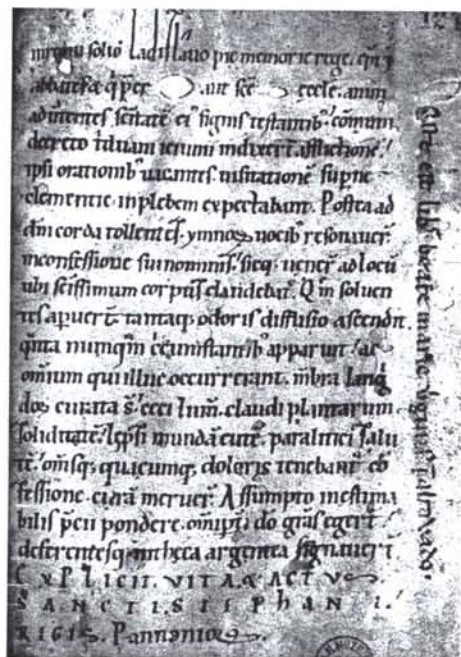 solio Ladislauo pie memorie rege. epi
abbates
aduertentes scitate ei signis testantib' comuni
decreto triduanu ieiuniu indixert.
ipsi orationib' uisitatione supne
clementie in plebem expectabant. Postea ad
dm corda tollentes. ymnos uocib' resonauer
in confessione sui nominis. sicq; uener ad locu
ubi scissimum corpus claudebat. Qm soluen
tes apuert tantaq; odoris diffusio ascendit.
qnta numqm ccumstantib' apparuit. ac
omnium qui illuc occurrerant. mbra lang
dos curata st. ceci lum. claudi plantarum
soliditate. lepsi munda cute. paralitici salu
te. oms q; quacumq; doloris tenebant ob
sessione. cura meruer. Assumpto inestima
bilis pcii pondere. ompti do gras egert
deferentesq; in theca argentea signauert
EXPLICIT. VITA & ACTUS
SANCTI. STEPHANI.
REGIS. Pannonio
Iste est liber beate marie uirginis